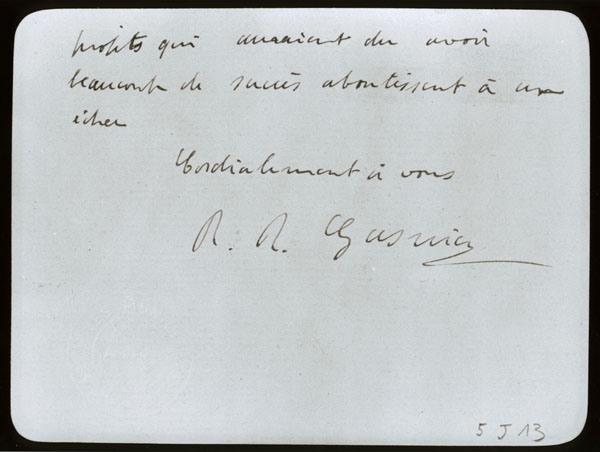 projets qui auraient du avoir
beaucoup de succès aboutissent à un
échec
Cordialement à vous
R. R. Gasnier
5 J 13